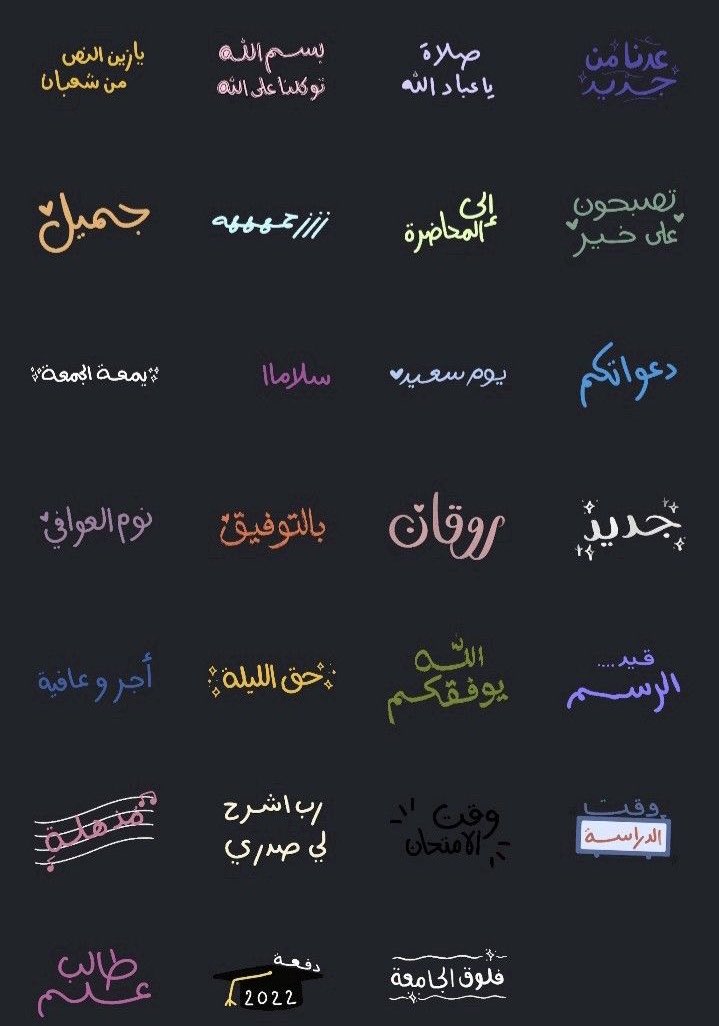 عدنا من
جديد
صلاة
يا عباد الله
بسم الله
توكلنا على الله
يا زين النص
من شعبان
تصبحون
على خير
إلى
المحاضرة
زززحمههههه
جميل
دعواتكم
يوم سعيد
سلاماا
يمعة الجمعة
جديد
روقان
بالتوفيق
نوم العوافي
قيد ....
الرسم
الله
يوفقكم
حق الليلة
أجر و عافية
وقت
الدراسة
وقت
الامتحان
رب اشرح
لي صدري
مذهلة
فلوق الجامعة
دفعة
2022
طالب
علم